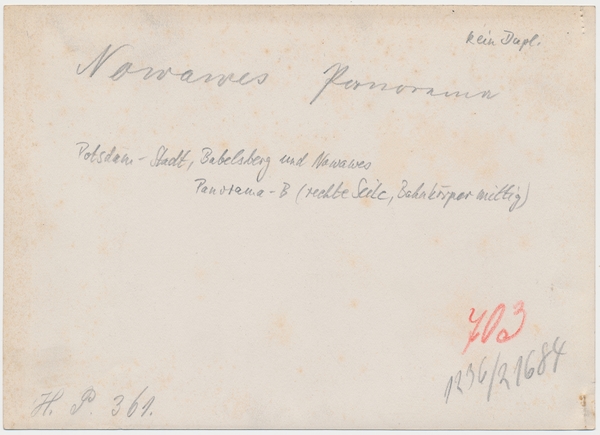 kein Dupl.
Nowawes Panorama
Potsdam-Stadt, Babelsberg und Nowawes
Panorama-B (rechte Seite, Bahnkörper mittig)
703
1236/21684
H. P. 361.